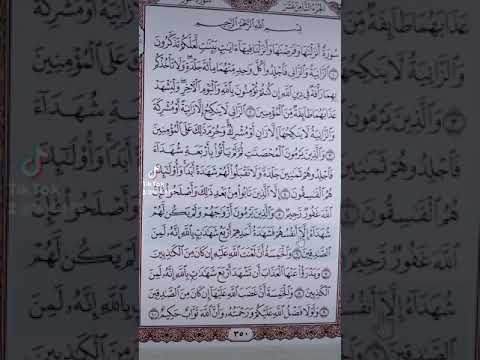 الجزء الثامن عشر
بِسْمِ ٱللَّهِ ٱلرَّحْمَٰنِ ٱلرَّحِيمِ
سُورَةٌ أَنزَلْنَٰهَا وَفَرَضْنَٰهَا وَأَنزَلْنَا فِيهَآ ءَايَٰتٍۭ بَيِّنَٰتٍ لَّعَلَّكُمْ تَذَكَّرُونَ
١ ٱلزَّانِيَةُ وَٱلزَّانِي فَٱجْلِدُوا۟ كُلَّ وَٰحِدٍ مِّنْهُمَا مِا۟ئَةَ جَلْدَةٍ وَلَا تَأْخُذْكُم
بِهِمَا رَأْفَةٌ فِي دِينِ ٱللَّهِ إِن كُنتُمْ تُؤْمِنُونَ بِٱللَّهِ وَٱلْيَوْمِ ٱلْءَاخِرِ وَلْيَشْهَدْ
عَذَابَهُمَا طَآئِفَةٌ مِّنَ ٱلْمُؤْمِنِينَ ٢ ٱلزَّانِي لَا يَنكِحُ إِلَّا زَانِيَةً أَوْ مُشْرِكَةً
وَٱلزَّانِيَةُ لَا يَنكِحُهَآ إِلَّا زَانٍ أَوْ مُشْرِكٌ وَحُرِّمَ ذَٰلِكَ عَلَى ٱلْمُؤْمِنِينَ
٣ وَٱلَّذِينَ يَرْمُونَ ٱلْمُحْصَنَٰتِ ثُمَّ لَمْ يَأْتُوا۟ بِأَرْبَعَةِ شُهَدَآءَ
فَٱجْلِدُوهُمْ ثَمَٰنِينَ جَلْدَةً وَلَا تَقْبَلُوا۟ لَهُمْ شَهَٰدَةً أَبَدًا وَأُو۟لَٰٓئِكَ
هُمُ ٱلْفَٰسِقُونَ ٤ إِلَّا ٱلَّذِينَ تَابُوا۟ مِنۢ بَعْدِ ذَٰلِكَ وَأَصْلَحُوا۟ فَإِنَّ
ٱللَّهَ غَفُورٌ رَّحِيمٌ ٥ وَٱلَّذِينَ يَرْمُونَ أَزْوَٰجَهُمْ وَلَمْ يَكُن لَّهُمْ
شُهَدَآءُ إِلَّآ أَنفُسُهُمْ فَشَهَٰدَةُ أَحَدِهِمْ أَرْبَعُ شَهَٰدَٰتٍۭ بِٱللَّهِ إِنَّهُۥ لَمِنَ
ٱلصَّٰدِقِينَ ٦ وَٱلْخَٰمِسَةُ أَنَّ لَعْنَتَ ٱللَّهِ عَلَيْهِ إِن كَانَ مِنَ ٱلْكَٰذِبِينَ
٧ وَيَدْرَؤُا۟ عَنْهَا ٱلْعَذَابَ أَن تَشْهَدَ أَرْبَعَ شَهَٰدَٰتٍۭ بِٱللَّهِ إِنَّهُۥ لَمِنَ
ٱلْكَٰذِبِينَ ٨ وَٱلْخَٰمِسَةَ أَنَّ غَضَبَ ٱللَّهِ عَلَيْهَآ إِن كَانَ مِنَ ٱلصَّٰدِقِينَ
٩ وَلَوْلَا فَضْلُ ٱللَّهِ عَلَيْكُمْ وَرَحْمَتُهُۥ وَأَنَّ ٱللَّهَ تَوَّابٌ حَكِيمٌ ١٠
٣٥٠
TikTok